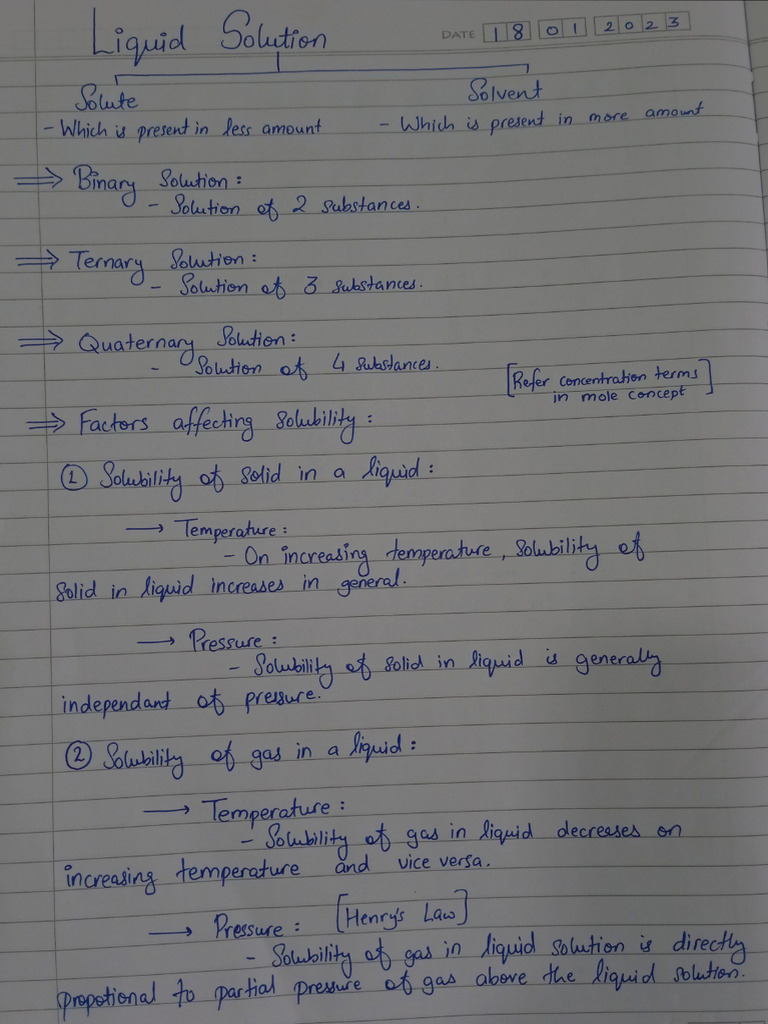 Liquid Solution
DATE 18 01 2023
Solute
Solvent
- Which is present in less amount
- Which is present in more amount
⇒ Binary Solution :
- Solution of 2 substances.
⇒ Ternary Solution :
- Solution of 3 substances.
⇒ Quaternary Solution :
- Solution of 4 substances.
[Refer concentration terms
in mole concept]
⇒ Factors affecting solubility :
① Solubility of solid in a liquid :
→ Temperature :
- On increasing temperature, solubility of
solid in liquid increases in general.
→ Pressure :
- Solubility of solid in liquid is generally
independant of pressure.
② Solubility of gas in a liquid :
→ Temperature :
- Solubility of gas in liquid decreases on
increasing temperature and vice versa.
→ Pressure : [Henry's Law]
- Solubility of gas in liquid solution is directly
propotional to partial pressure of gas above the liquid solution.